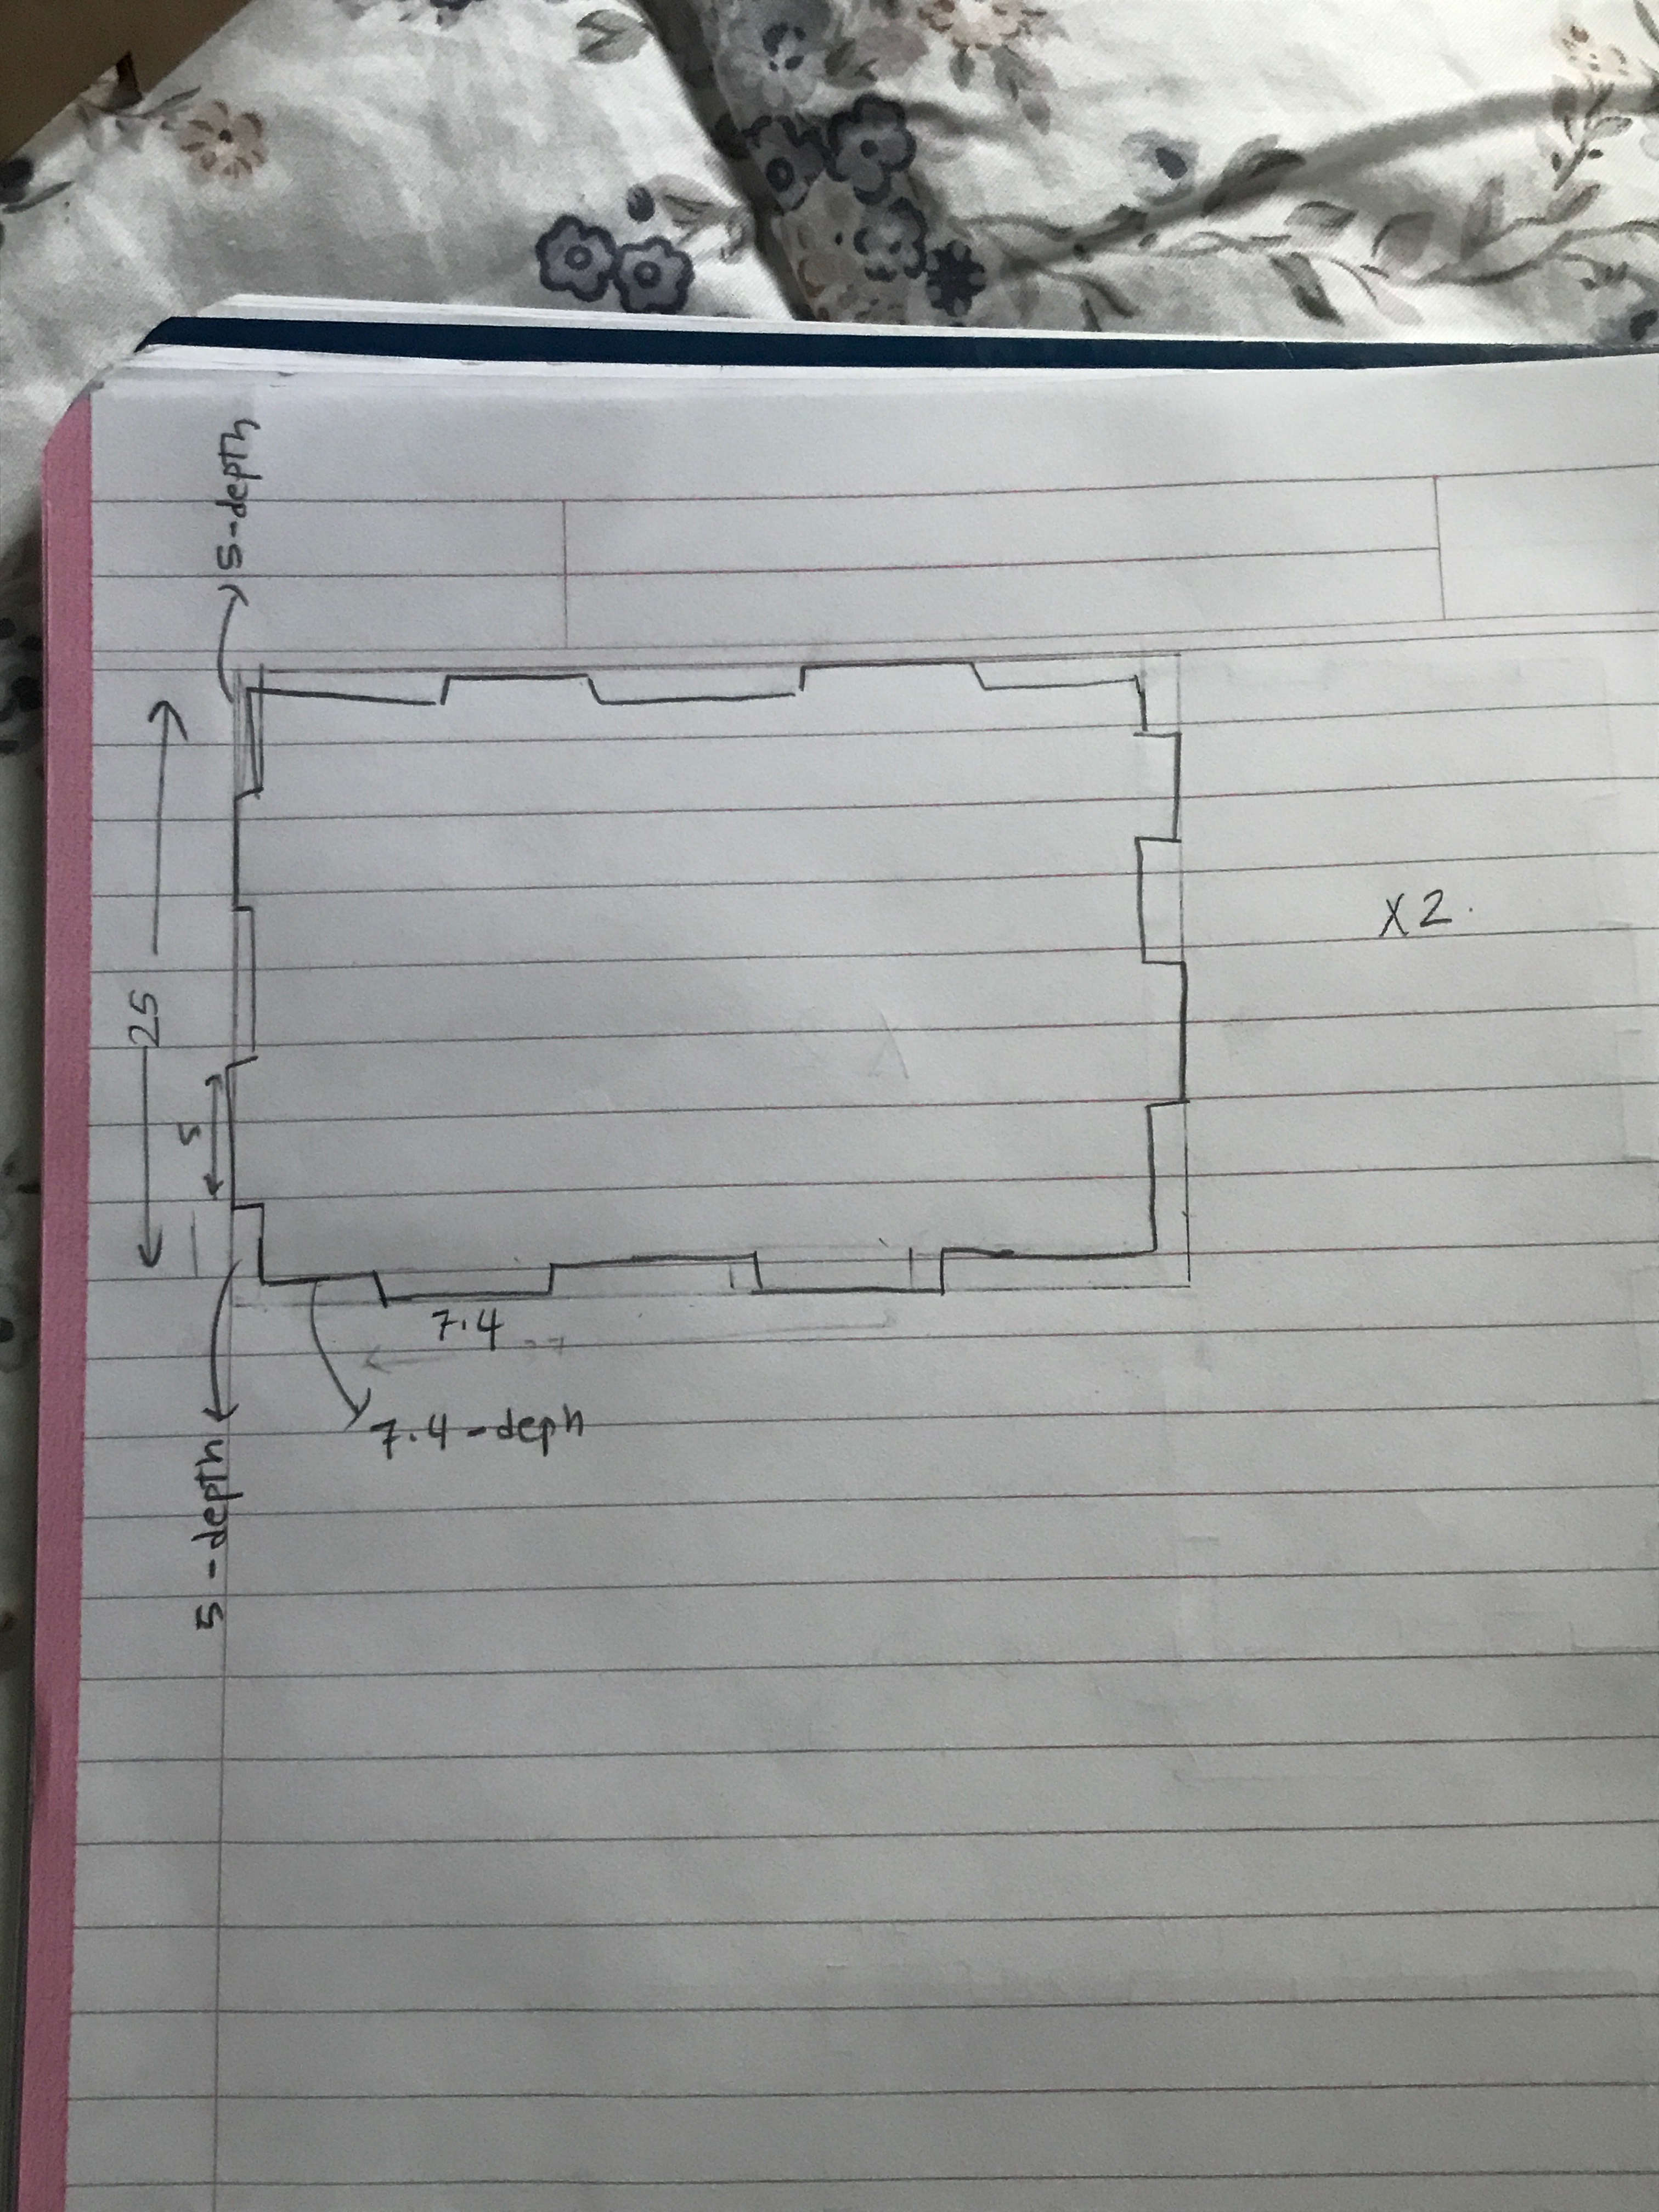 5-depth
25
5
x2.
7.4
7.4-deph
5-depth